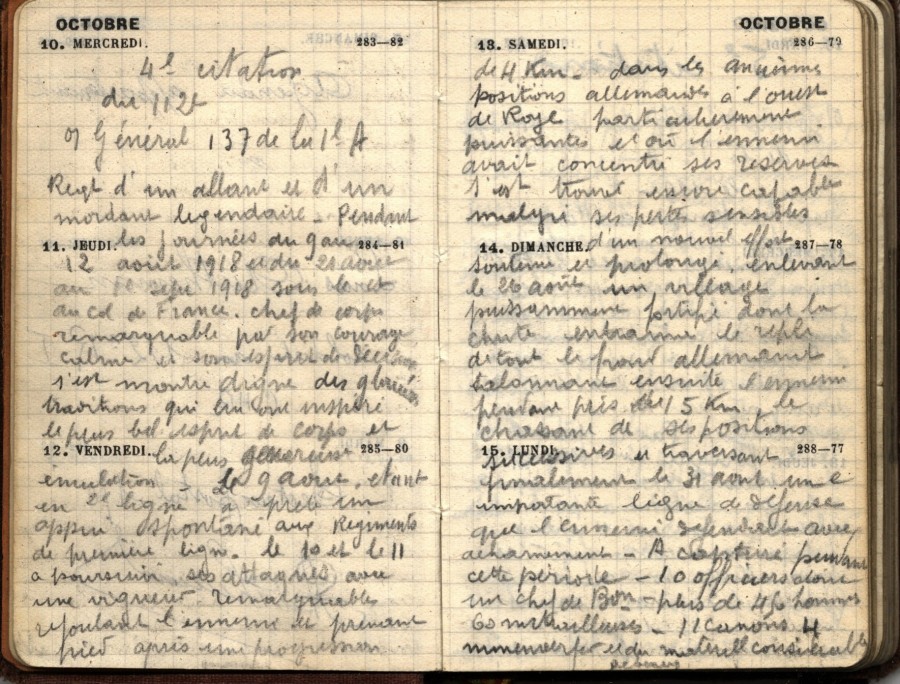 OCTOBRE
10. MERCREDI. 283—82
4e citation
du 112e
Général 137 de la 1e A
Regt d'un allant et d'un
mordant legendaire – Pendant
les journées du 9 au
11. JEUDI. 284—81
12 aout 1918 et du 21 aout
au 1e sept 1918 sous le
col de France. chef de corps
remarquable par son courage
calme et son esprit de décision
s'est montré digne des glorieuses
traditions qui lui ont inspiré
le plus bel esprit de corps et
la plus genereuse
12. VENDREDI. 285—80
emulation le 9 aout, etant
en 2e ligne a prêté un
appui spontané aux Regiments
de première ligne. le 10 et le 11
a poursuivi ses attaques avec
une vigueur remarquable
refoulant l'ennemi et prenant
pied après une progression
OCTOBRE
13. SAMEDI. 286—79
de 4 Km – dans les anciennes
positions allemandes à l'ouest
de Roye particulierement
puissantes et où l'ennemi
avait concentré ses reserves
s'est trouvé encore capable
malgré ses pertes sensibles
d'un nouvel effort
14. DIMANCHE. 287—78
soutenu et prolongé, enlevant
le 26 août un village
puissamment fortifié dont la
chute entraine le repli
de tout le front allemand
talonnant ensuite l'ennemi
pendant près de 15 Km le
chassant de ses positions
15. LUNDI. 288—77
successives et traversant
finalement le 31 aout une
importante ligne de défense
que l'ennemi defendait avec
acharnement – A capturé pendant
cette période – 10 officiers dont
un chef de Bon – plus de 46 hommes
60 mitrailleuses – 11 canons 4
minenwerfer et du materiel considerable